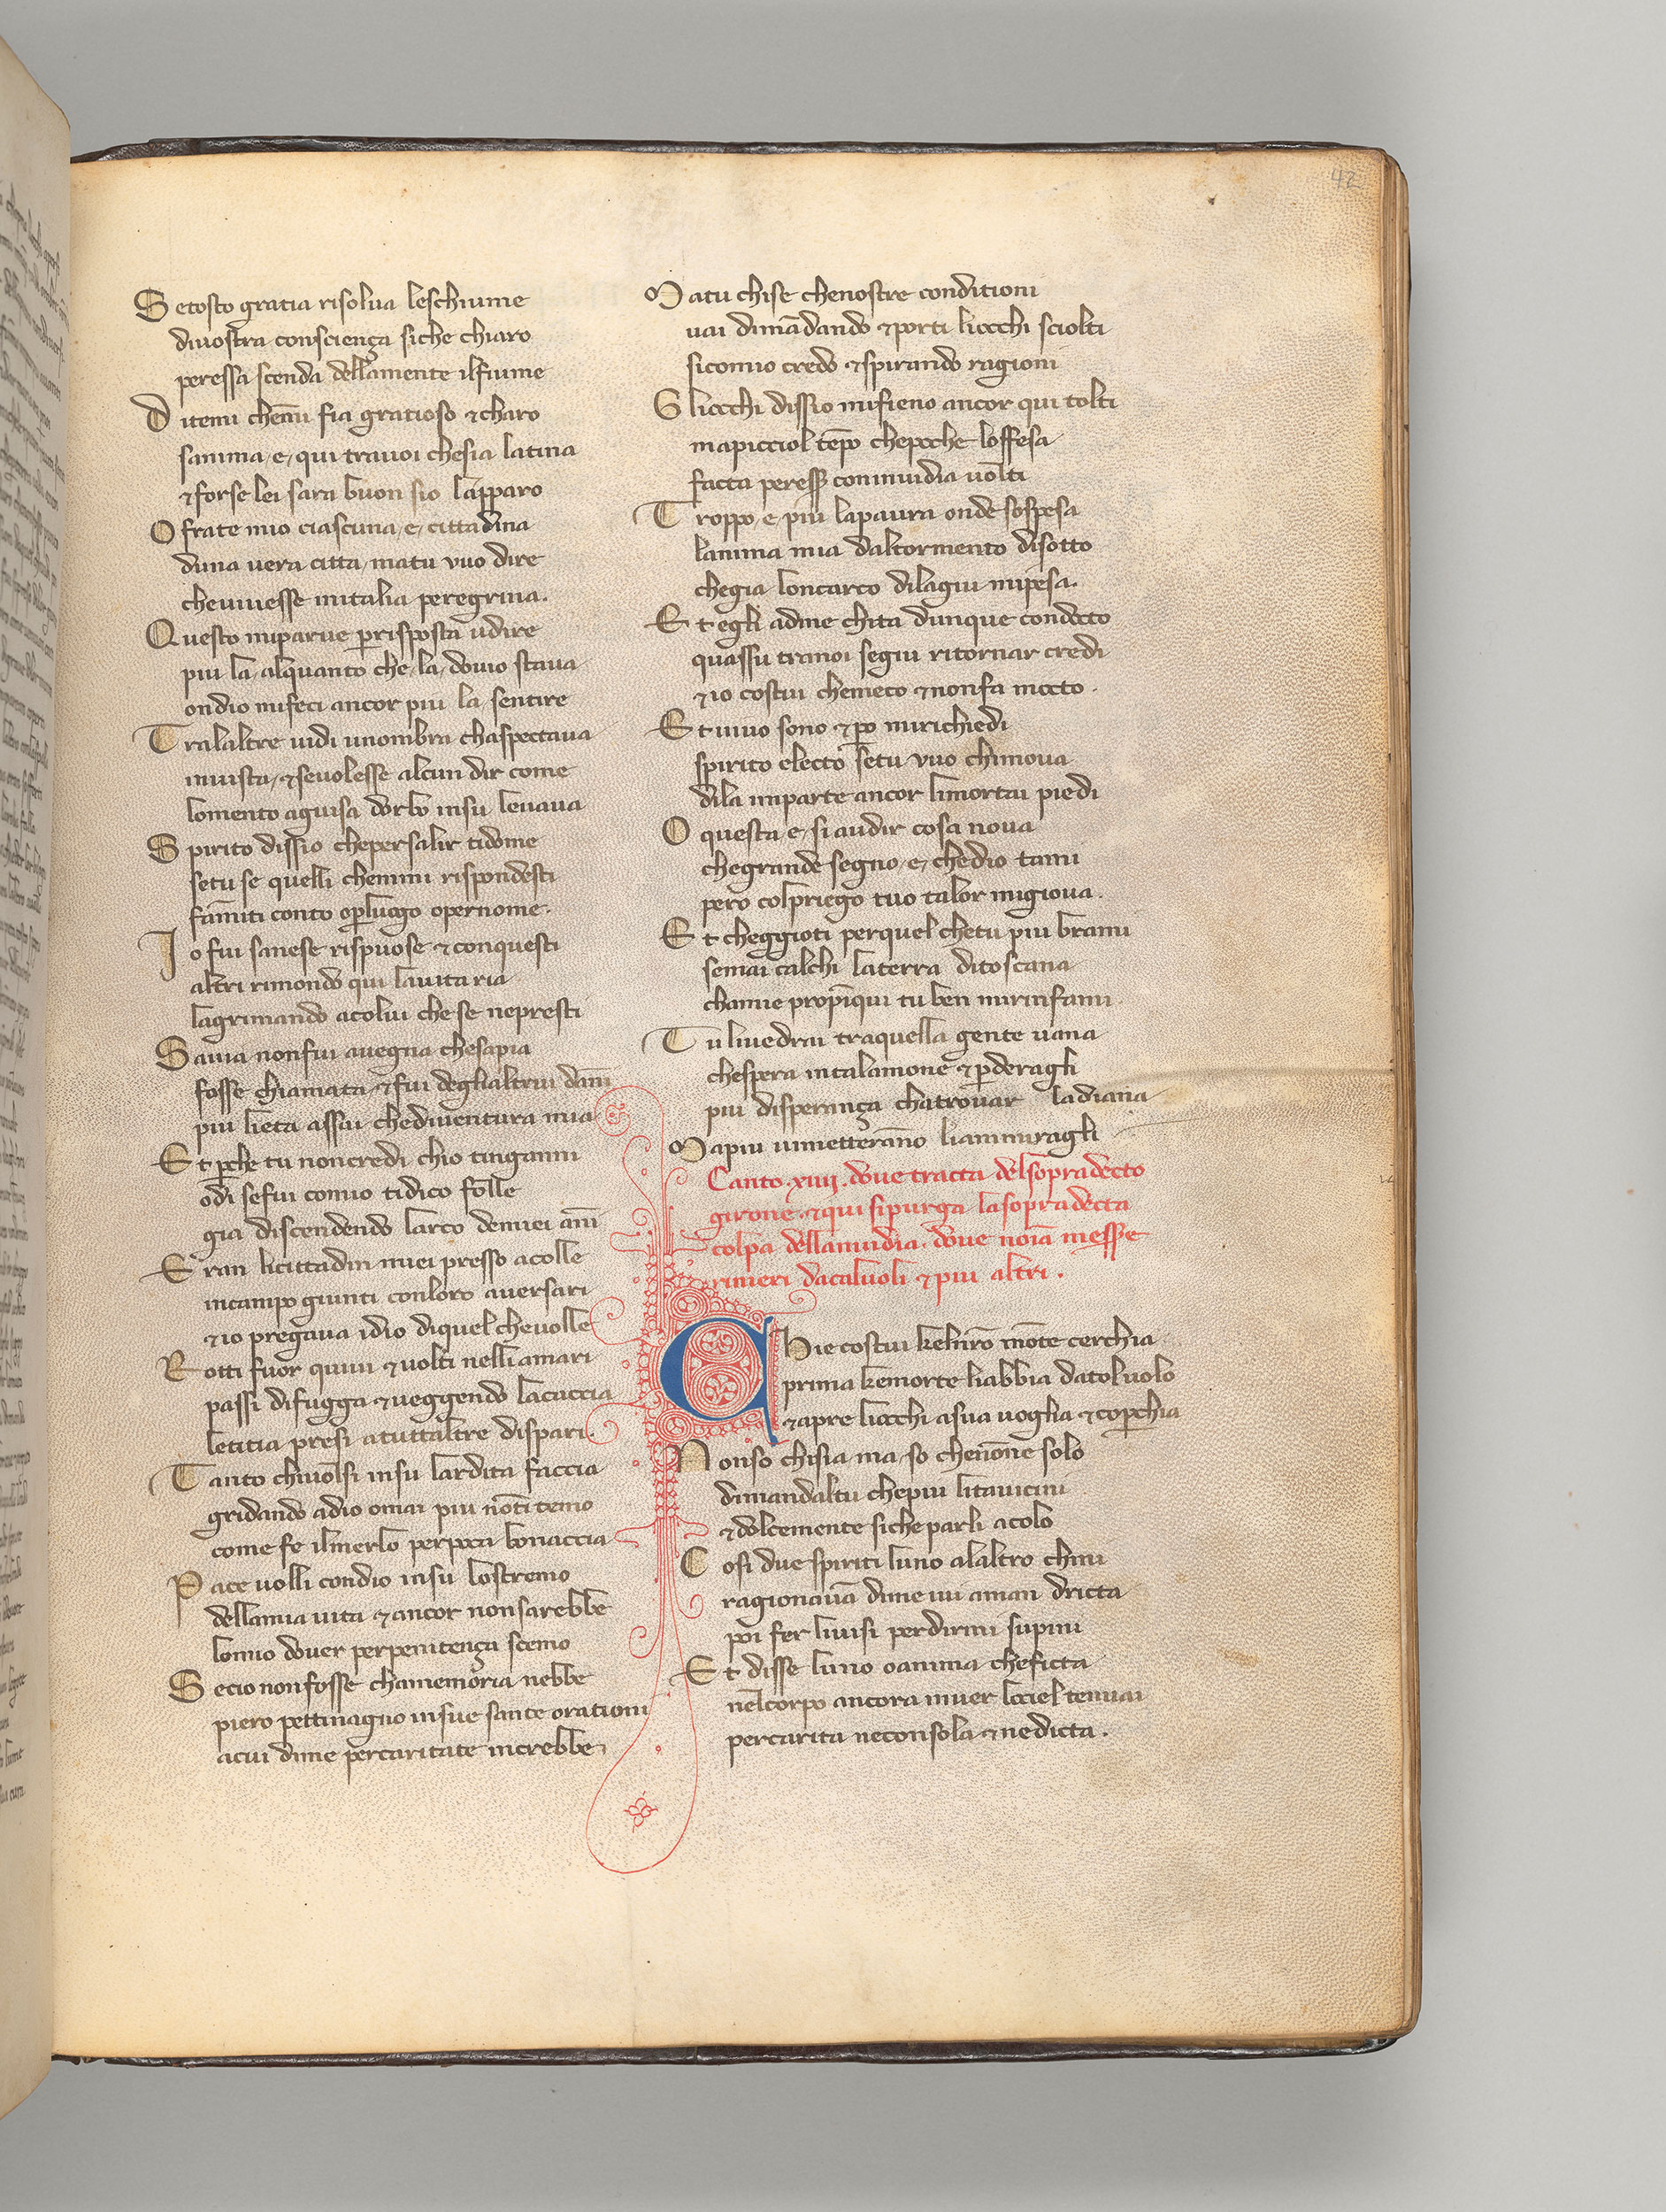 42
Se tosto gratia risolua leschiume
diuostra consciença siche chiaro
peressa scenda dellamente ilfiume
Ditemi chem̄i fia gratioso ⁊ charo
sanima .e. qui trauoi chesia latina
⁊ forse lei sara buon sio lapparo
O frate mio ciascuna .e. cittadina
duna uera citta matu vuo dire
cheuiuesse initalia peregrina.
Questo miparue ꝑrisposta udire
piu la alquanto che la douio staua
ondio mifeci ancor piu la sentire
Tralaltre uidi unombra chaspectaua
inuista ⁊ seuolesse alcun dir come
lomento aguisa dorbo insu leuaua
Spirito dissio chepersalir tidome
setu se quelli chemmi rispondesti
fam̄iti conto oꝑluogo opernome.
Io fui sanese rispuose ⁊ conquesti
altri rimondo qui lauita ria
lagrimando acolui che se nepresti
Sauia nonfui auegna chesapia
fosse chiamata ⁊ fui deglialtrui dan̄i
piu lieta assai chediuentura mia
Et ꝑche tu noncredi chio tinganni
odi sefui comio tidico folle
gia discendendo larco demiei an̄i
Eran licittadin miei presso acolle
incampo giunti conloro auersari
⁊ io pregaua idio diquel cheuolle
Rotti fuor quiui ⁊ uolti nelli amari
passi difugga ⁊ ueggendo lacaccia
letitia presi atuttaltre dispari.
Tanto chiuolsi insu lardita faccia
gridando adio omai piu nōti temo
come fe ilmerlo perpoca bonaccia
Pace uolli condio insu lostremo
dellamia uita ⁊ ancor nonsarebbe
lomio douer perpenitença scemo
Secio nonfosse chamemoria nebbe
piero pettinagno insue sante orationi
acui dime percaritate increbbe
Matu chise chenostre conditioni
uai dimādando ⁊ porti liocchi sciolti
sicomio credo ⁊ spirando ragioni
Gliocchi dissio mifieno ancor qui tolti
mapicciol tēpo chepoche loffesa
facta peresser coninuidia uolti
Troppo .e. piu lapaura onde sospesa
lanima mia daltormento disotto
chegia loncarco dilagiu mipesa.
Et egli adme chita dunque condocto
quassu tranoi segiu ritornar credi
⁊ io costui chemeco ⁊ nonfa mocto.
Et uiuo sono ⁊ ꝑo mirichiedi
spirito electo setu vuo chimoua
dila imparte ancor limortai piedi
O questa .e. si audir cosa noua
chegrande segno .e. chedio tami
pero colpriego tuo talor migioua.
Et cheggioti perquel chetu piu brami
semai calchi laterra ditoscana
chamie propīqui tu ben mirinfami
Tu liuedrai traquella gente uana
chespera intalamone ⁊ ꝑderagli
piu disperança chatrouar ladiana
Mapiu uimetterāno liammiragli
Canto .xiiij. doue tracta delsopradecto
girone. ⁊ qui sipurga lasopradecta
colpa dellanuidia. doue noīa messer
rinieri dacaluoli ⁊ piu altri.
Chie costui kelnr̄o mōte cerchia
prima kemorte liabbia datoluolo
⁊ apre liocchi asua uoglia ⁊ coꝑchia
Nonso chisia ma so chenōne solo
dimandaltu chepiu litauicini
⁊ dolcemente siche parli acolo
Cosi due spiriti luno alaltro chini
ragionauā dime iui aman dricta
poi fer liuisi perdirmi supini
Et disse luno oanima cheficta
nelcorpo ancora inuer lociel tenuai
percarita neconsola ⁊ nedicta.